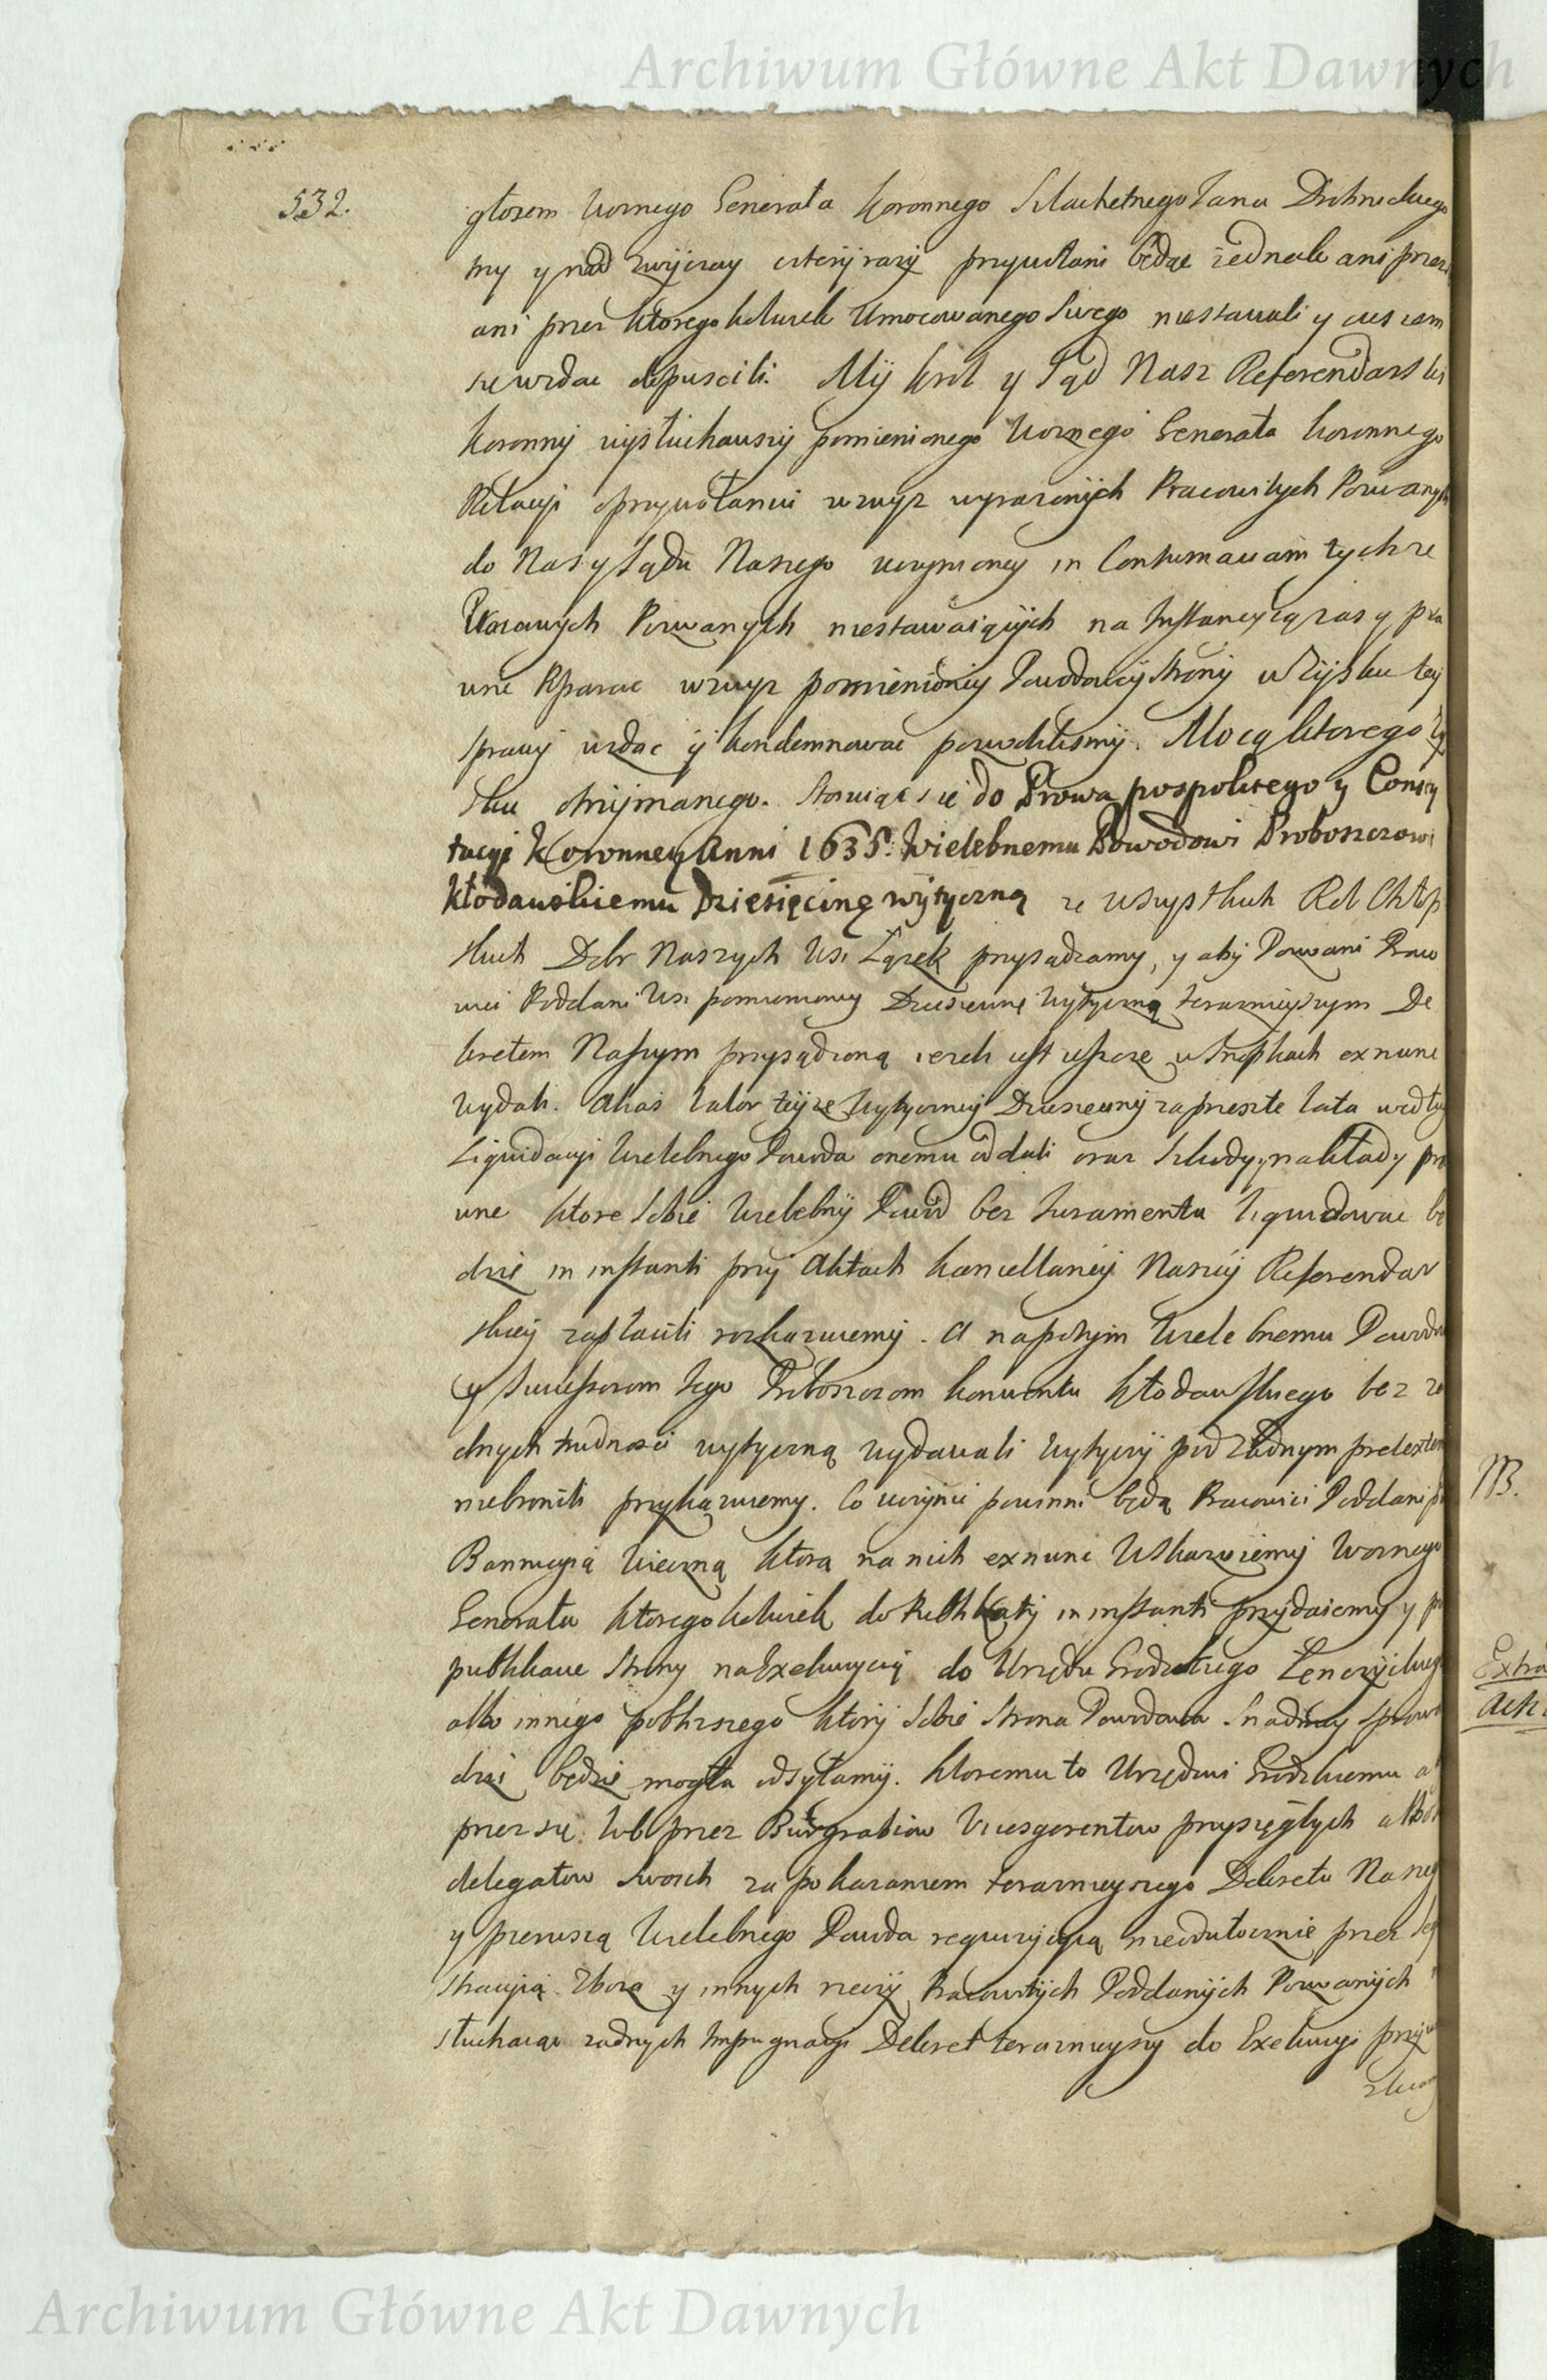 Archiwum Główne Akt Dawnych
532.
głosem Woznego Generała Koronnego Szlachetnego Jana
my y nad zwyczay cztery razy przywołani będąc jednak ani przez
ani przez ktoregokolwiek Umocowanego Swego niestawali y
się wzdac dopuscili. My Krol y Sąd Nasz Referendarski
Koronny wysłuchawszy pomienionego Woznego Generała Koronnego
Relacyi o przywołaniu wzwyz wyrazonych Pracowitych Pozwanych
do Nas y Sądu Naszego uczynioney in Contumaciam tychze
Pozwanych niestawaiących na Instancyią
wzwyz pomienioney Powodowey Strony w Zysku tey
sprawy wzdac y kondemnowac pozwolilismy. Mocą ktorego Zy
sku otrzymanego. Stosuiąc się do Prawa pospolitego y Consty
tucyi Koronney Anni 1635. Wielebnemu Powodowi Proboszczowi
Kłodawskiemu Dziesięcinę wytyczną ze wszystkich Rol Chłop
skich Dobr Naszych Wsi Łązek przysądzamy, y aby Pozwani Praco
wici Poddani Wsi pomienioney Dziesięcinę Wytyczną teraznieyszym De
kretem Naszym przysądzoną iezeli iest ieszcze w Snopkach exnunc
wydali. Alias Valor teyze Wytyczney Dziesięciny za przeszłe lata według
Liquidacyi Wielebnego Powoda onemu oddali oraz Szkody, nakłady pra
wne ktore Sobie Wielebny Powod bez Juramentu liquidowac bę
dzie in instanti przy Aktach Kancellaryi Naszey Referendar
skiey zapłacili rozkazuiemy. A napotym Wielebnemu Powodowi
y Successorom Jego Proboszczom Konwentu Kłodawskiego bez za
dnych trudnosci wytyczną wydawali Wytyczy pod zadnym pretextem
niebronili przykazuiemy. Co uczynic powinni będą Pracowici Poddani
Bannicyią Wieczną ktorą na nich exnunc Wskazuiemy Woznego
Generała ktoregokolwiek do Publikaty in instanti przydaiemy y po
publikacie Strony na Exekucyią do Urzędu Grodzkiego Łęczyckiego
albo innego poblizszego ktory Sobie Strona Powodowa snadniey sprowa
dzic będzie mogła odsyłamy. Ktoremu to Urzędowi Grodzkiemu
przez się lub przez Burgrabiow Vicesgerentow przysięgłych
delegatow Swoich za pokazaniem teraznieyszego Dekretu Naszego
y pierwszą Wielebnego Powoda requizycyią nieodwłocznie przez Se
stracyią Zboza y innych rzeczy Pracowitych Poddanych Pozwanych
słuchaiąc zadnych Impugnacyi Dekret teraznieyszy do Exekucyi
NB.
Archiwum Główne Akt Dawnych